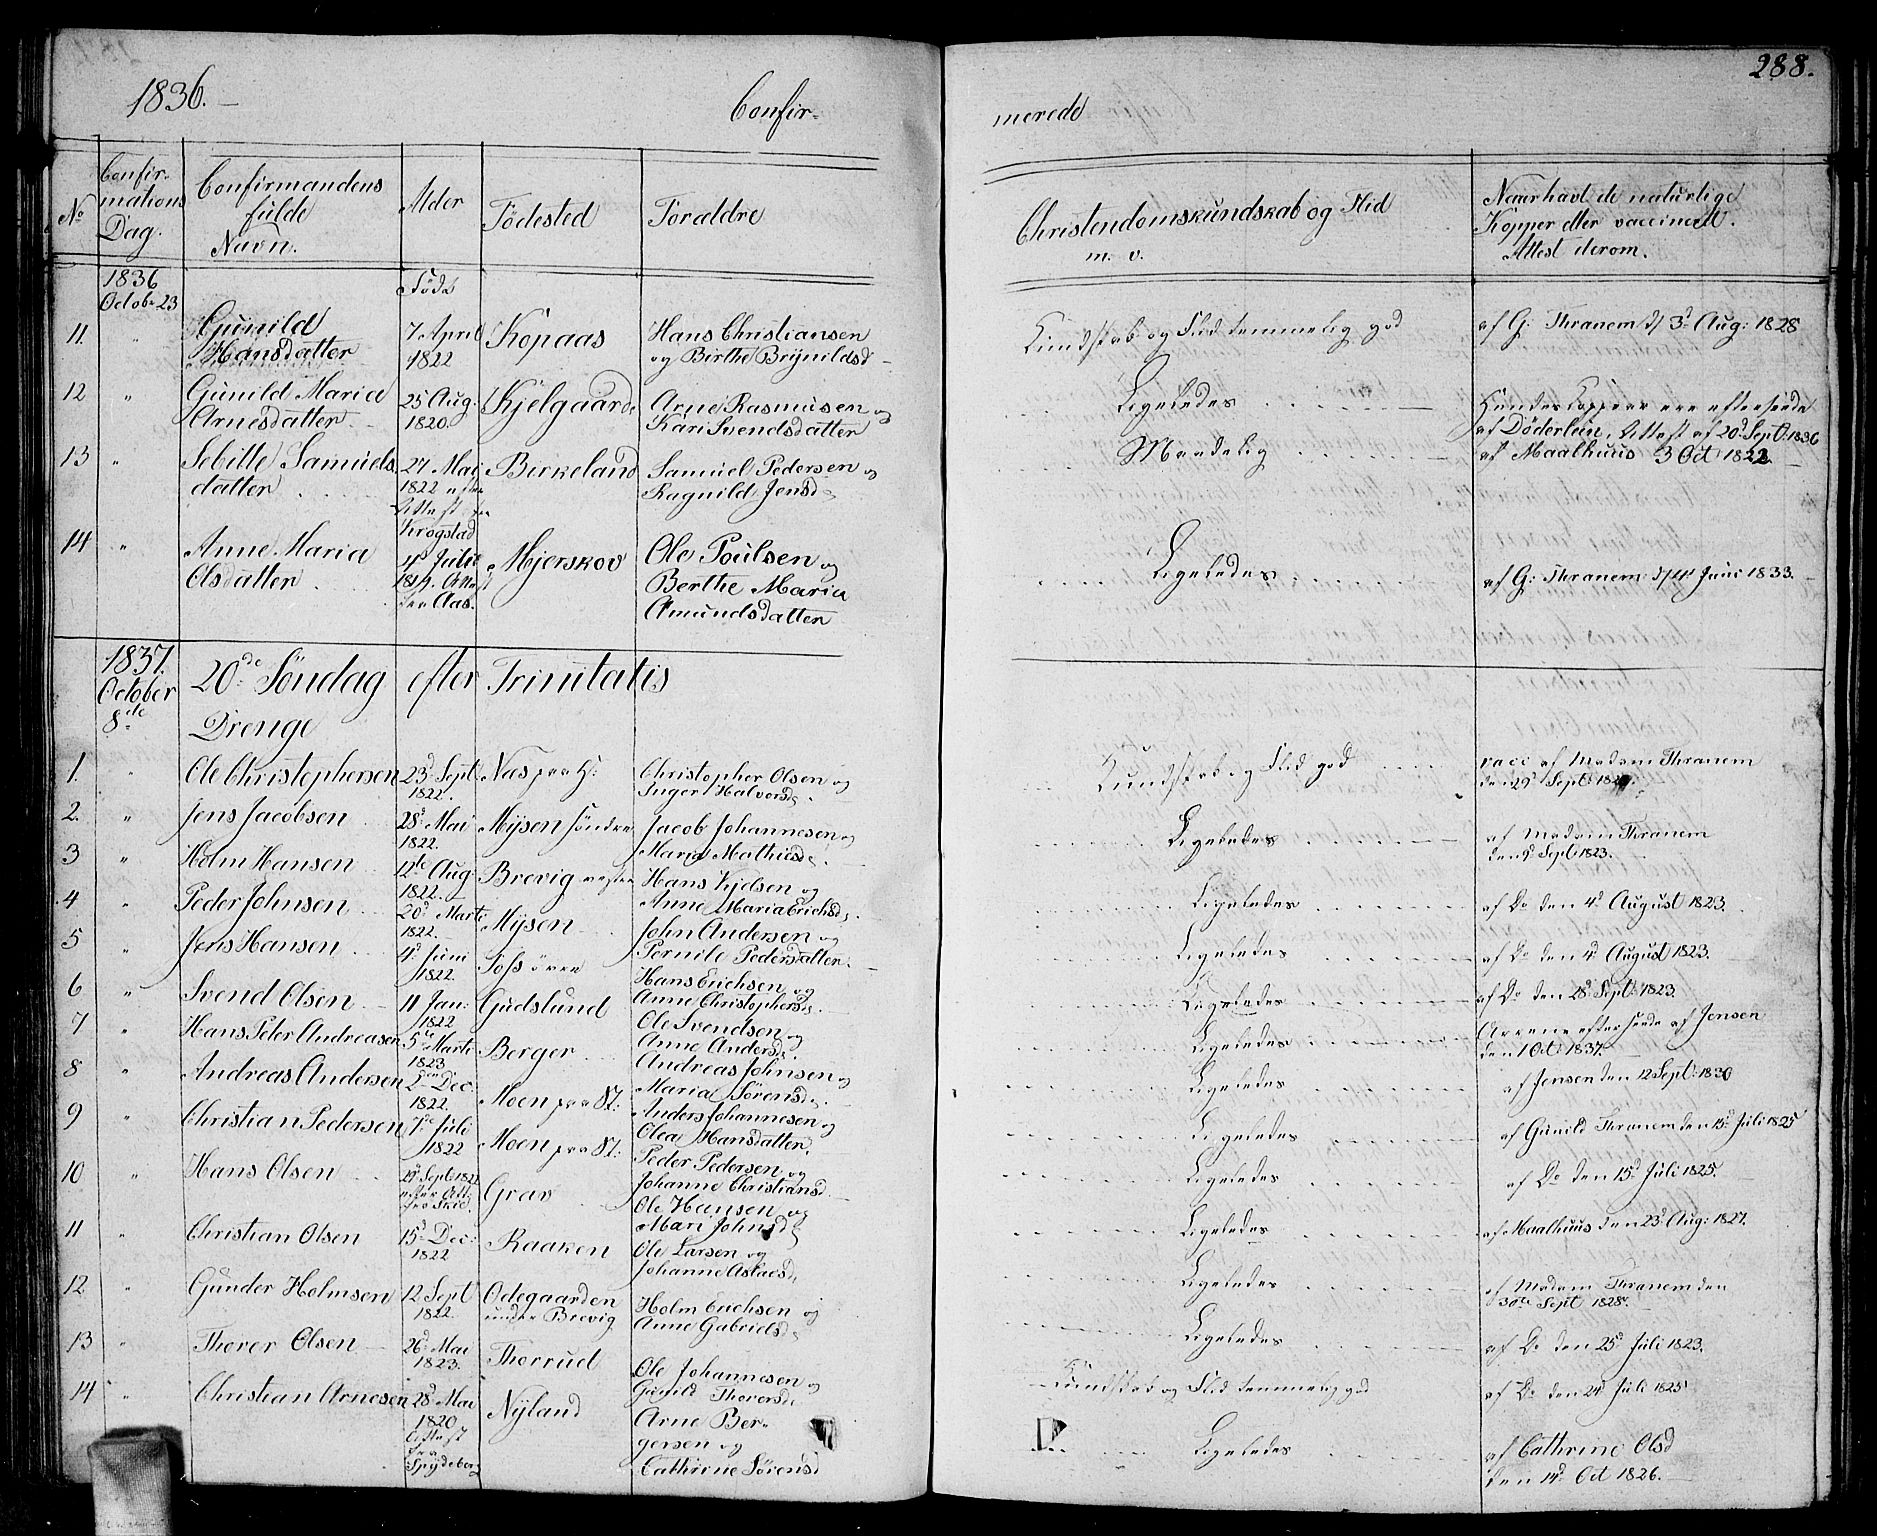 1836.
Confir-
merede
288.
No
Confir-
mations
Dag.
Confirmandens
fulde
Navn.
Alder
Födested
Forældre
Christendomskundskab og Flid
m. v.
Naar havt de naturlige
Kopper eller vaccineret.
Attest derom.
1836
Octobr 23
Födt
11. " Gunild Hansdatter 7 April 1822 Kopaas Hans Christiansen og Birthe Brynildsd Kundskab og Flid temmelig god af G: Thranem d/ 3d Aug: 1828
12 " Gunild Maria Arnesdatter 25 Aug: 1820. Kjelgaard Arne Rasmusen og Kari Svendsdatter Ligeledes af Döderlein, Attest af 20d Sept: 1836
13 " Sebille Samuels datter 27 Mai 1822 efter Attest fra Krogstad Birkeland Samuel Pedersen og Ragnild Jensd: Maadelig af Maalhuus 3 Oct 1822
14 " Anne Maria Olsdatter Attest fra Aas. Mjerskov Ole Poulsen og Berthe Maria Amundsdatter Ligeledes af G: Thranem d/ 4d Juni 1833.
1837.
October
8de
20de Söndag efter Trinitatis
Drenge
1. " Ole Christophersen 23d Sept 1822. Næs Christopher Olsen og Inger Halvorsd: Kundskab og Flid god vacc af Madam Thranem den 29d Sept:
2. " Jens Jacobsen 28d Mai 1822. Mysen söndre Jacob Johannesen og Maria Mathiasd: Ligeledes af Madam Thranem den 9d Sept 1823.
3 " Holm Hansen 12te Aug 1822. Brevig vestre Hans Kjelsen og Anne Maria Erichsd: Ligeledes af Do den 4d August 1823.
4 " Peder Johnsen 20d Marti 1822. Mysen John Andersen og Pernile Pedersdatter. Ligeledes af Do den 4d August 1823.
5 " Jens Hansen 4d Juni 1822. Foss övre Hans Erichsen og Anne Christophersd: Ligeledes af Do den 28d Sept: 1823.
6 " Svend Olsen 11 Jan: 1822 Gudslund Ole Svendsen og Anne Andersd: Ligeledes Arrene efterseede af Jensen den 1 Oct: 1837.
7 " Hans Peder Andreasen 5te Marti 1823 Berger Andreas Johnsen og Maria Sörensd: Ligeledes af Jensen den 12 Sept: 1830
8 " Andreas Andersen 2den Dec: 1822. Moen Anders Johannesen og Olea Hansdatter. Ligeledes af Gunild Thranem den 15d Juli 1825
9 " Christian Pedersen 7de Juli 1822 Moen Peder Pedersen og Johanne Christiansd. Ligeledes af Do den 15d Juli 1825.
10 " Hans Olsen 29d Sept 1822 efter Att: fra Skie. Grav Ole Hansen og Mari Johnsd Ligeledes af Maalhuus den 23d Aug: 1827.
11 " Christian Olsen 15d Dec: 1822 Raaken Ole Larsen og Johanne Aslaesd: Ligeledes af Madam Thranem den 30te Sept 1828.
12 " Gunder Holmsen 12 Sept 1822. Odegaarden under Brevig Holm Erichsen og Anne Gabrielsd: Ligeledes af Do den 25d Juli 1823.
13 " Thorer Olsen 26d Mai 1823. Thorrud Ole Johannesen og Gunild Thorersd: Kundskab og Flid temmelig god af Do den 24 Juli 1825
14 " Christian Arnesen 28d Mai 1820 Attest fra Spydeberg Nyland Arne Ber- gersen og Cathrine Sörensd Ligeledes af Cathrine Olsd den 14d Oct 1826.